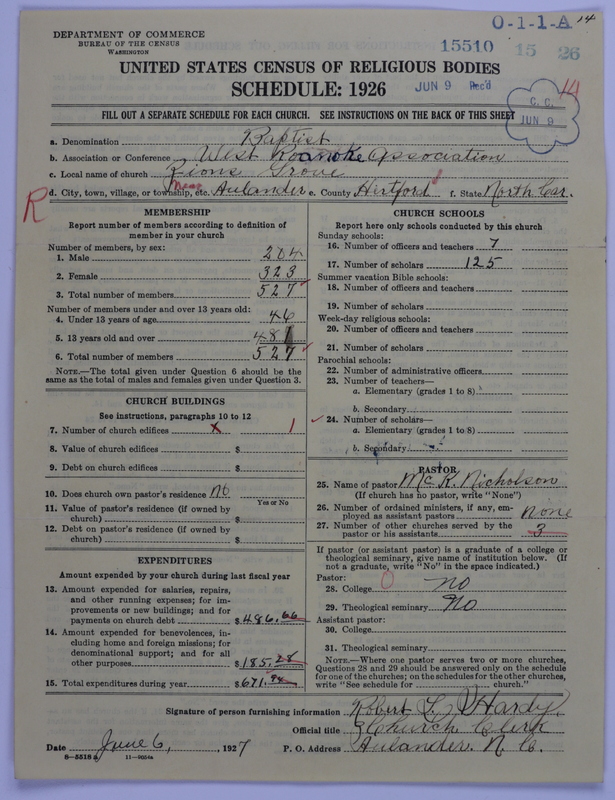 O-1-1-A 14
DEPARTMENT OF COMMERCE
BUREAU OF THE CENSUS
WASHINGTON
15510 15 26
UNITED STATES CENSUS OF RELIGIOUS BODIES
SCHEDULE: 1926
JUN 9 Rec'd
14
C. C.
JUN 9
FILL OUT A SEPARATE SCHEDULE FOR EACH CHURCH. SEE INSTRUCTIONS ON THE BACK OF THIS SHEET
a. Denomination Baptist
b. Association or Conference West Roanoke Association
c. Local name of church Zions Grove
R
d. City, town, village, or township, etc. Near Aulander e. County Hertford f. State North Car.
MEMBERSHIP
Report number of members according to definition of
member in your church
Number of members, by sex:
1. Male 204
2. Female 323
3. Total number of members 527
Number of members under and over 13 years old:
4. Under 13 years of age 46
5. 13 years old and over 481
6. Total number of members 527
NOTE.—The total given under Question 6 should be
same as the total of males and females given under Question 3.
CHURCH BUILDINGS
See instructions, paragraphs 10 to 12
7. Number of church edifices x 1
8. Value of church edifices $
9. Debt on church edifices $
10. Does church own pastor's residence no
Yes or No
11. Value of pastor's residence (if owned by
church) $
12. Debt on pastor's residence (if owned by
church) $
EXPENDITURES
Amount expended by your church during last fiscal year
13. Amount expended for salaries, repairs,
and other running expenses; for im-
provements or new buildings; and for
payments on church debt $486.66
14. Amount expended for benevolences, in-
cluding home and foreign missions; for
denominational support; and for all
other purposes $185.28
15. Total expenditures during year $671.94
CHURCH SCHOOLS
Report here only schools conducted by this church
Sunday schools:
16. Number of officers and teachers 7
17. Number of scholars 125
Summer vacation Bible schools:
18. Number of officers and teachers
19. Number of scholars
Week-day religious schools:
20. Number of officers and teachers
21. Number of scholars
Parochial schools:
22. Number of administrative officers
23. Number of teachers—
a. Elementary (grades 1 to 8)
b. Secondary
24. Number of scholars—
a. Elementary (grades 1 to 8)
b. Secondary
PASTOR
25. Name of pastor Mc. R. Nicholson
(If church has no pastor, write "None")
26. Number of ordained ministers, if any, em-
ployed as assistant pastors None
27. Number of other churches served by the
pastor or his assistants 3
If pastor (or assistant pastor) is a graduate of a college or
theological seminary, give name of institution below. (If
not a graduate, write "No" in the space indicated.)
Pastor:
28. College O no
29. Theological seminary No
Assistant pastor:
30. College
31. Theological seminary
NOTE.—Where one pastor serves two or more churches,
Questions 28 and 29 should be answered only on the schedule
for one of the churches; on the schedules for the other churches,
write "See schedule for church."
Signature of person furnishing information Robert L. Hardy
Official title Church Clerk
Date June 6, 1927 P. O. Address Aulander. N. C.
8-5518 a 11-9054a